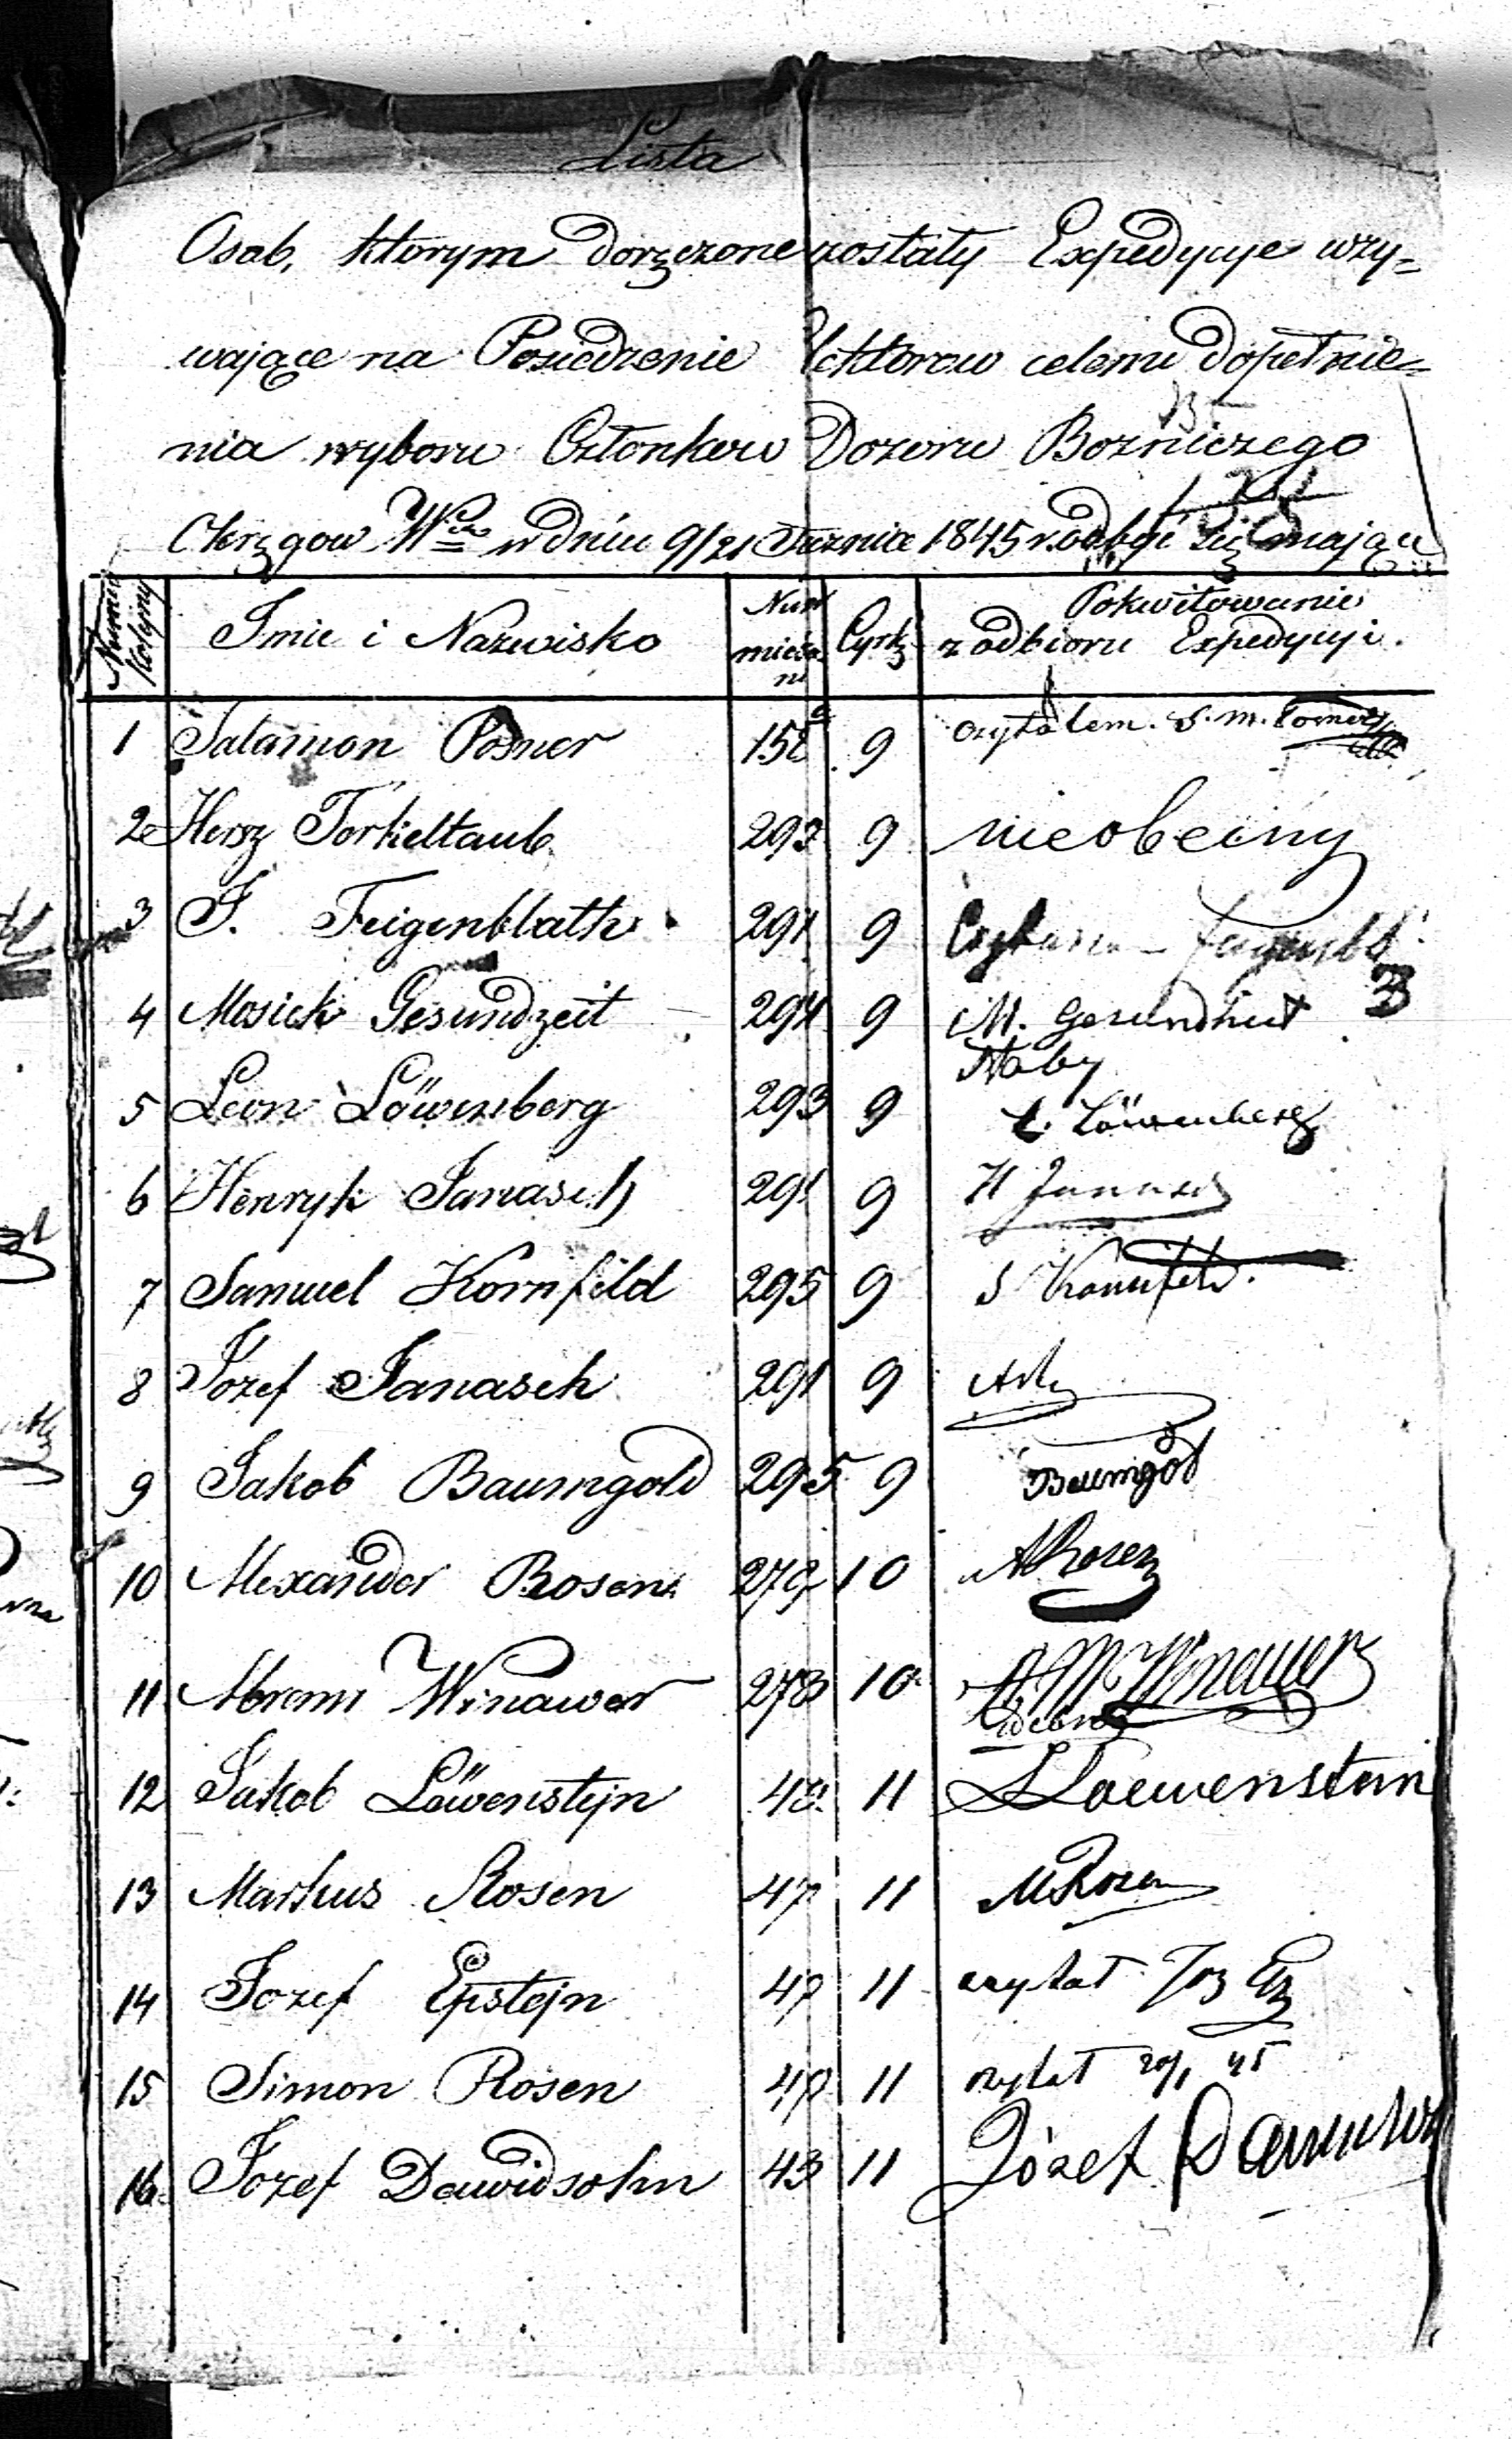 Lista
Osob, ktorym doręczone zostały Expedycye wzy=
wające na Posiedzenie Elektorow celem dopełnie=
nia wyboru Członkow Dozoru Bozniczego
Okręgow W. w dniu 9/21 Stycznia 1845 r. odbyć się mające
Numer kolejny Imie i Nazwisko Num mieszka ni Cyrk Pokwitowanie
z odbioru Expedycyi.
1 Salamon Posner 158 9 czytałem. S. M. Posner
2 Hersz Torkeltaub 293 9 nieobecny
3 J. Feigenblath 291 9
4 Mosiek Gesundzeit 294 9 M. Gesundheit
5 Leon Löwenberg 293 9 L. Löwenberg
6 Henryk Janasch 291 9 H Janasch
7 Samuel Kornfeld 295 9 S Kornfeld.
8 Jozef Janasch 291 9
9 Jakob Baumgold 295 9 Baumgold
10 Alexander Rosen 279 10 ARosen
11 Abram Winawer 278 10 A M Winawer
12 Jakob Löwenstejn 10 11 Loewenstein
13 Markus Rosen 47 11 MRosen
14 Jozef Epstejn 47 11 czytał Joz Ep
15 Simon Rosen 47 11 czytał 20/1 45
16 Jozef Dawidsohn 43 11 Józef